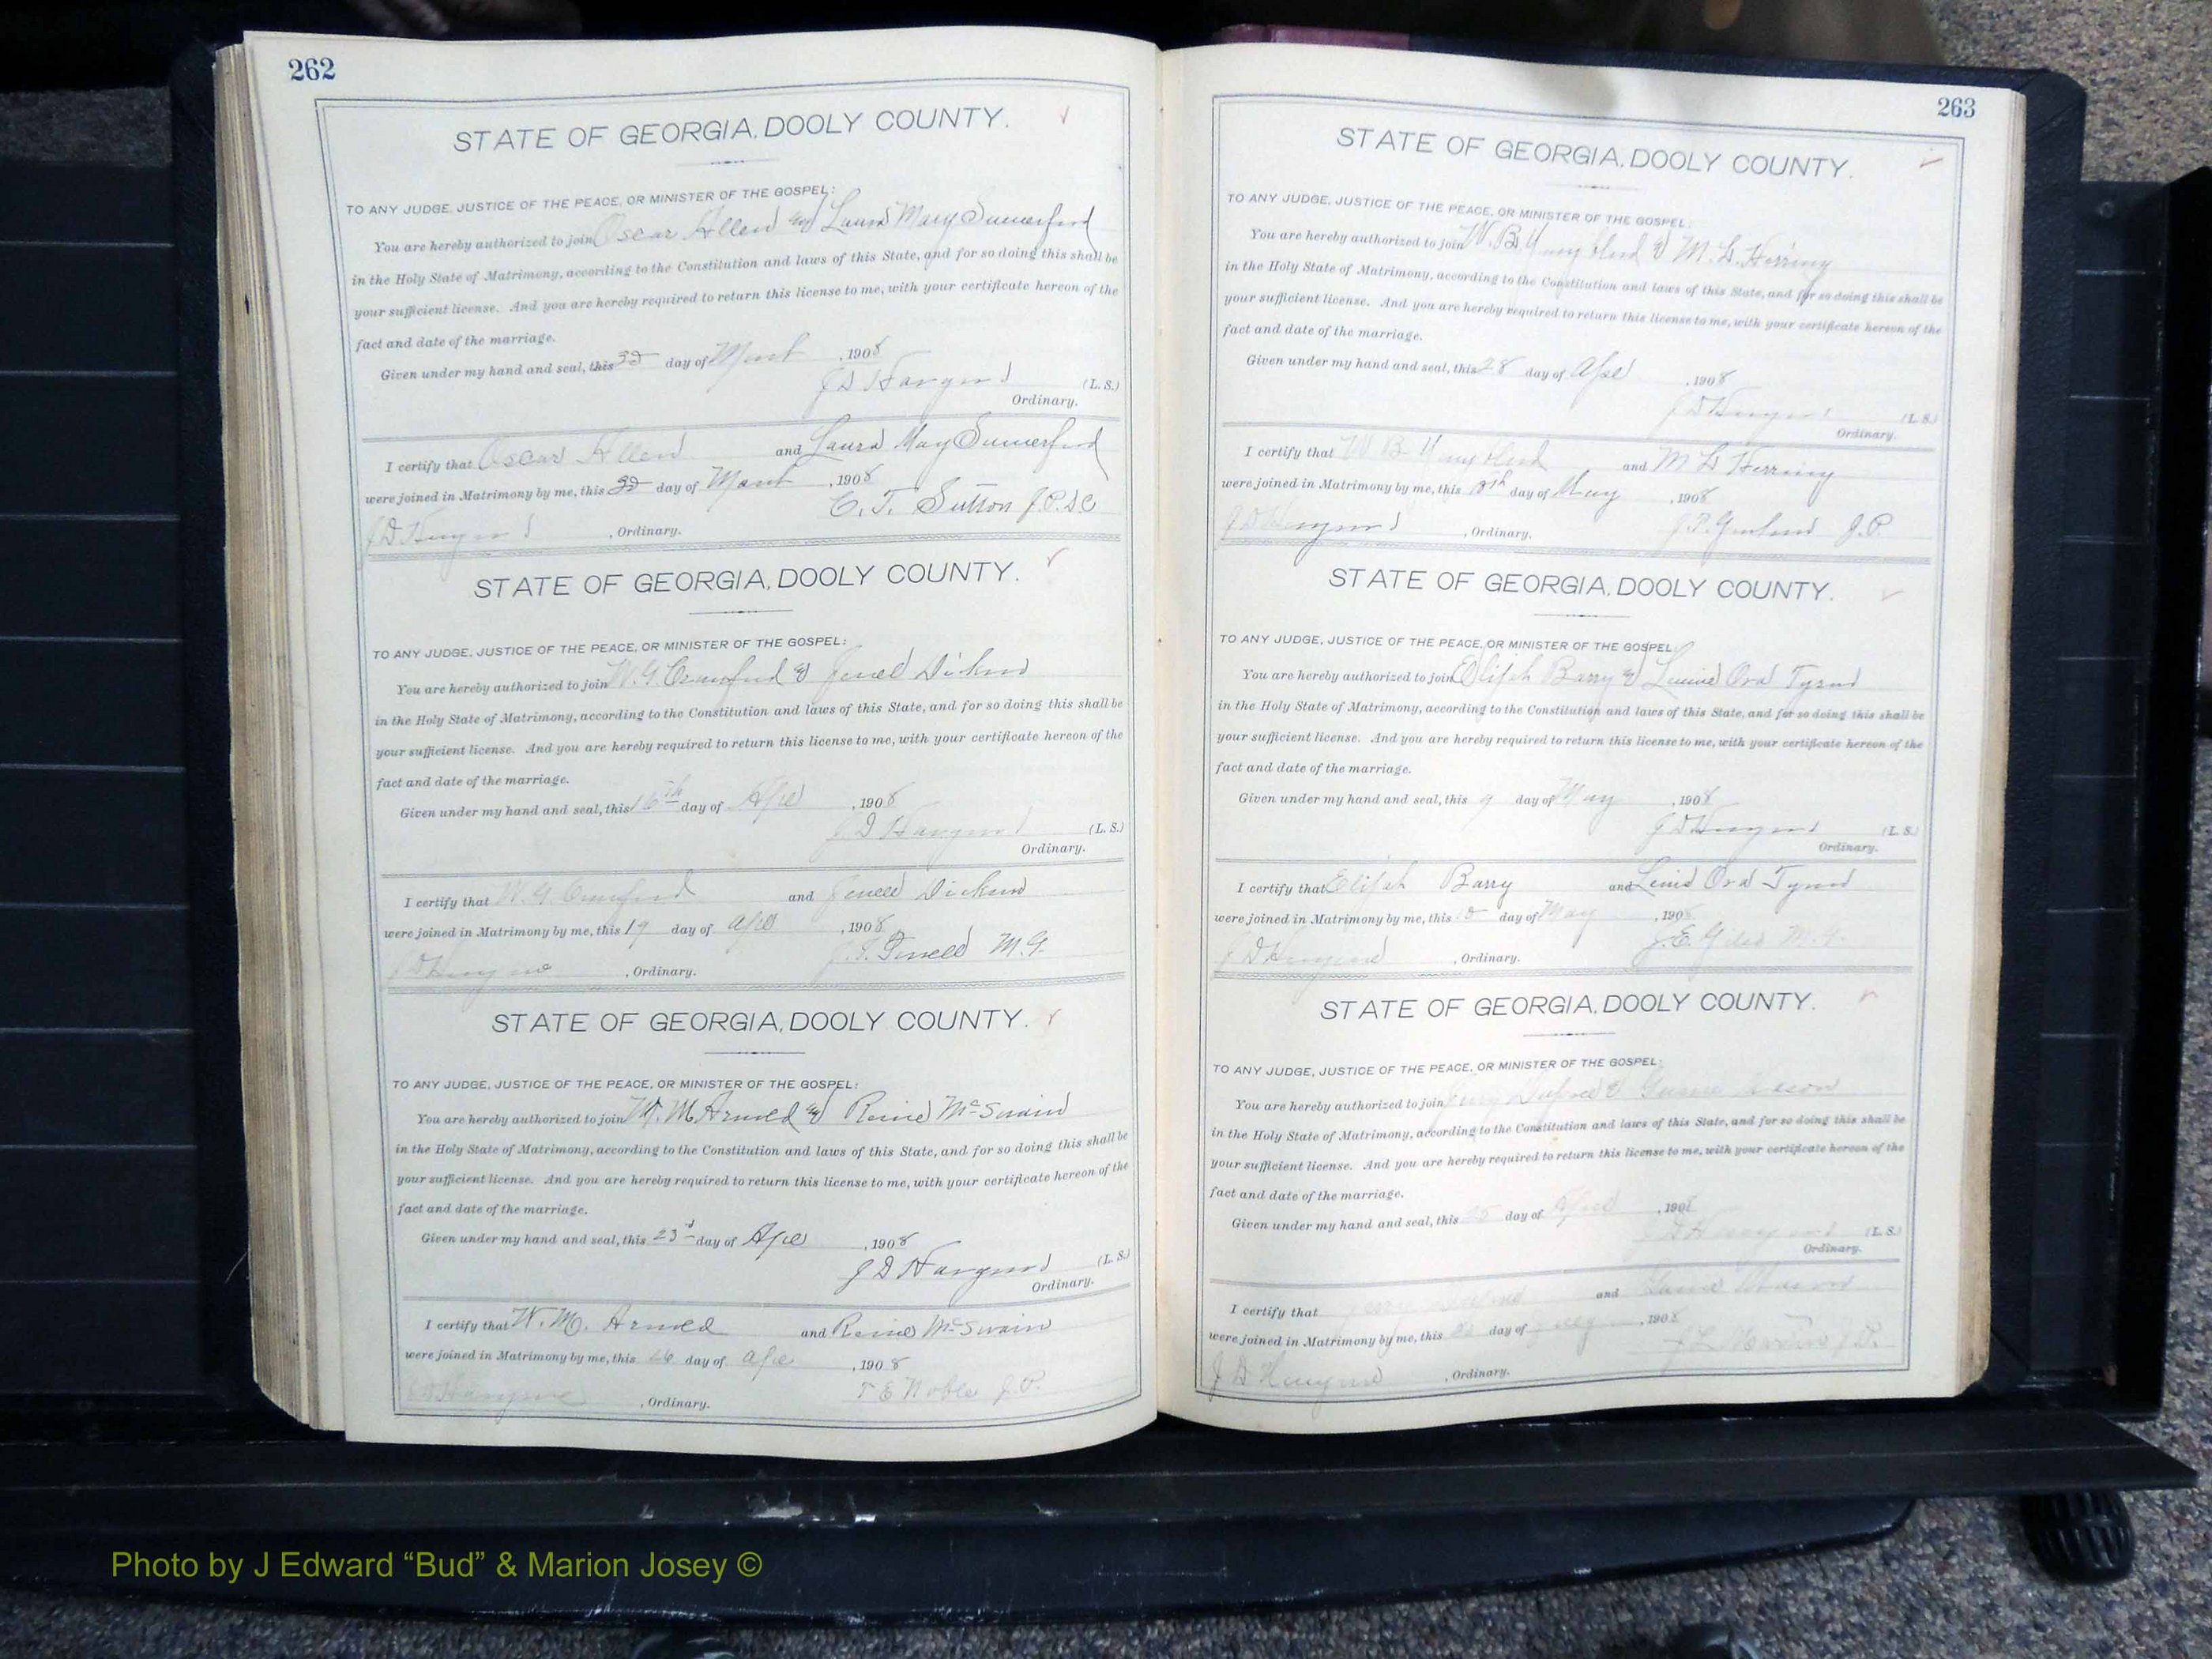 262
STATE OF GEORGIA, DOOLY COUNTY.
TO ANY JUDGE, JUSTICE OF THE PEACE, OR MINISTER OF THE GOSPEL:
You are hereby authorized to join Oscar Allen and Laura May Sumerford
in the Holy State of Matrimony, according to the Constitution and laws of this State, and for so doing this shall be
your sufficient license. And you are hereby required to return this license to me, with your certificate hereon of the
fact and date of the marriage.
Given under my hand and seal, this day of , 1908
J D (L. S.)
Ordinary.
I certify that Oscar Allen and Laura May Sumerford
were joined in Matrimony by me, this day of , 1908
C. T. Sutton J.P.D.C
J D , Ordinary.
STATE OF GEORGIA, DOOLY COUNTY.
TO ANY JUDGE, JUSTICE OF THE PEACE, OR MINISTER OF THE GOSPEL:
You are hereby authorized to join W. G. Crawford &
in the Holy State of Matrimony, according to the Constitution and laws of this State, and for so doing this shall be
your sufficient license. And you are hereby required to return this license to me, with your certificate hereon of the
fact and date of the marriage.
Given under my hand and seal, this 16th day of Apl , 1908
J D (L. S.)
Ordinary.
I certify that W. G. Crawford and
were joined in Matrimony by me, this 19 day of Apl , 1908
M. G.
J D , Ordinary.
STATE OF GEORGIA, DOOLY COUNTY.
TO ANY JUDGE, JUSTICE OF THE PEACE, OR MINISTER OF THE GOSPEL:
You are hereby authorized to join W. M Arnold and McSwain
in the Holy State of Matrimony, according to the Constitution and laws of this State, and for so doing this shall be
your sufficient license. And you are hereby required to return this license to me, with your certificate hereon of the
fact and date of the marriage.
Given under my hand and seal, this 23d day of Apl , 1908
J D (L. S.)
Ordinary.
I certify that W. M. Arnold and McSwain
were joined in Matrimony by me, this 26 day of Apl , 1908
T E Noble J.P.
J D , Ordinary.
263
STATE OF GEORGIA, DOOLY COUNTY.
TO ANY JUDGE, JUSTICE OF THE PEACE, OR MINISTER OF THE GOSPEL:
You are hereby authorized to join W. B. & M. L. Herring
in the Holy State of Matrimony, according to the Constitution and laws of this State, and for so doing this shall be
your sufficient license. And you are hereby required to return this license to me, with your certificate hereon of the
fact and date of the marriage.
Given under my hand and seal, this 28 day of Apl , 1908
J D (L. S.)
Ordinary.
I certify that W B and M L Herring
were joined in Matrimony by me, this day of May , 1908
J.P.
J D , Ordinary.
STATE OF GEORGIA, DOOLY COUNTY.
TO ANY JUDGE, JUSTICE OF THE PEACE, OR MINISTER OF THE GOSPEL:
You are hereby authorized to join Elijah Barry & Ora
in the Holy State of Matrimony, according to the Constitution and laws of this State, and for so doing this shall be
your sufficient license. And you are hereby required to return this license to me, with your certificate hereon of the
fact and date of the marriage.
Given under my hand and seal, this 9 day of May , 1908
J D (L. S.)
Ordinary.
I certify that Elijah Barry and Ora
were joined in Matrimony by me, this 10 day of May , 1908
J. E. Giles M. G.
J D , Ordinary.
STATE OF GEORGIA, DOOLY COUNTY.
TO ANY JUDGE, JUSTICE OF THE PEACE, OR MINISTER OF THE GOSPEL:
You are hereby authorized to join
in the Holy State of Matrimony, according to the Constitution and laws of this State, and for so doing this shall be
your sufficient license. And you are hereby required to return this license to me, with your certificate hereon of the
fact and date of the marriage.
Given under my hand and seal, this day of April , 1908
J D (L. S.)
Ordinary.
I certify that and
were joined in Matrimony by me, this day of , 1908
J D , Ordinary.
Photo by J Edward “Bud” & Marion Josey ©